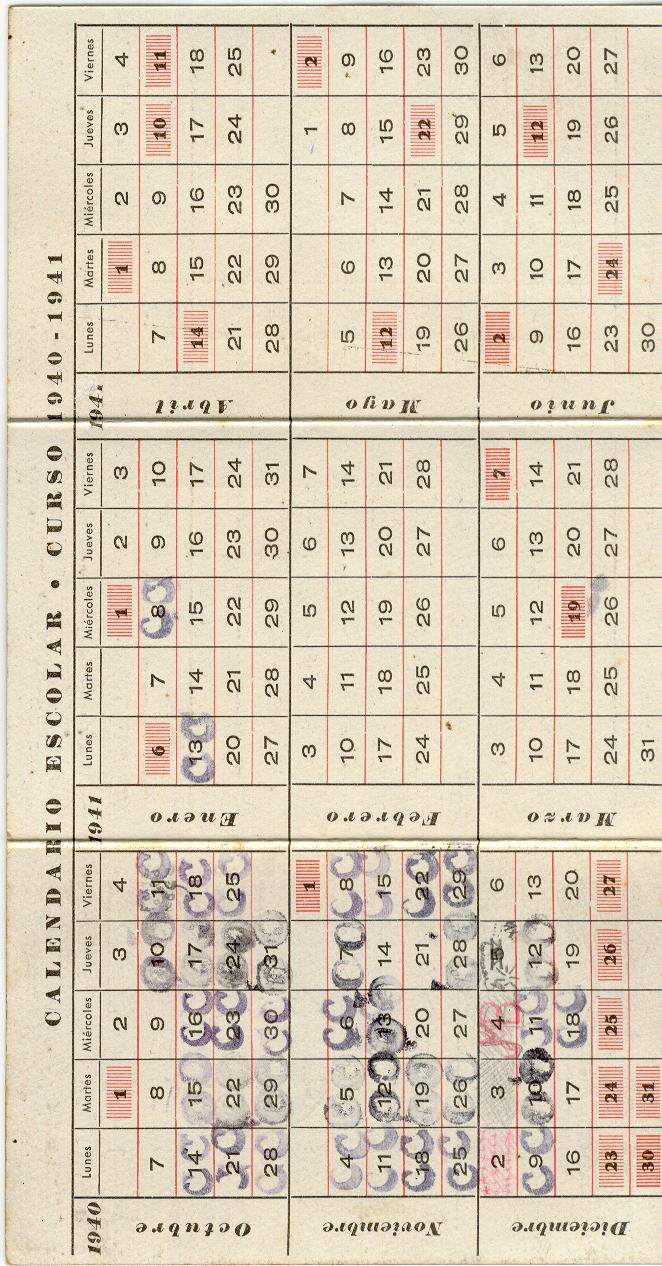 CALENDARIO ESCOLAR • CURSO 1940-1941
1940 Lunes Martes Miércoles Jueves Viernes
Octubre
1 2 3 4
7 8 9 10 11
14 15 16 17 18
21 22 23 24 25
28 29 30 31
Noviembre
1
4 5 6 7 8
11 12 13 14 15
18 19 20 21 22
25 26 27 28 29
Diciembre
2 3 4 5 6
9 10 11 12 13
16 17 18 19 20
23 24 25 26 27
30 31
1941 Lunes Martes Miércoles Jueves Viernes
Enero
1 2 3
6 7 8 9 10
13 14 15 16 17
20 21 22 23 24
27 28 29 30 31
Febrero
3 4 5 6 7
10 11 12 13 14
17 18 19 20 21
24 25 26 27 28
Marzo
3 4 5 6 7
10 11 12 13 14
17 18 19 20 21
24 25 26 27 28
31
1941 Lunes Martes Miércoles Jueves Viernes
Abril
1 2 3 4
7 8 9 10 11
14 15 16 17 18
21 22 23 24 25
28 29 30
Mayo
1 2
5 6 7 8 9
12 13 14 15 16
19 20 21 22 23
26 27 28 29 30
Junio
2 3 4 5 6
9 10 11 12 13
16 17 18 19 20
23 24 25 26 27
30